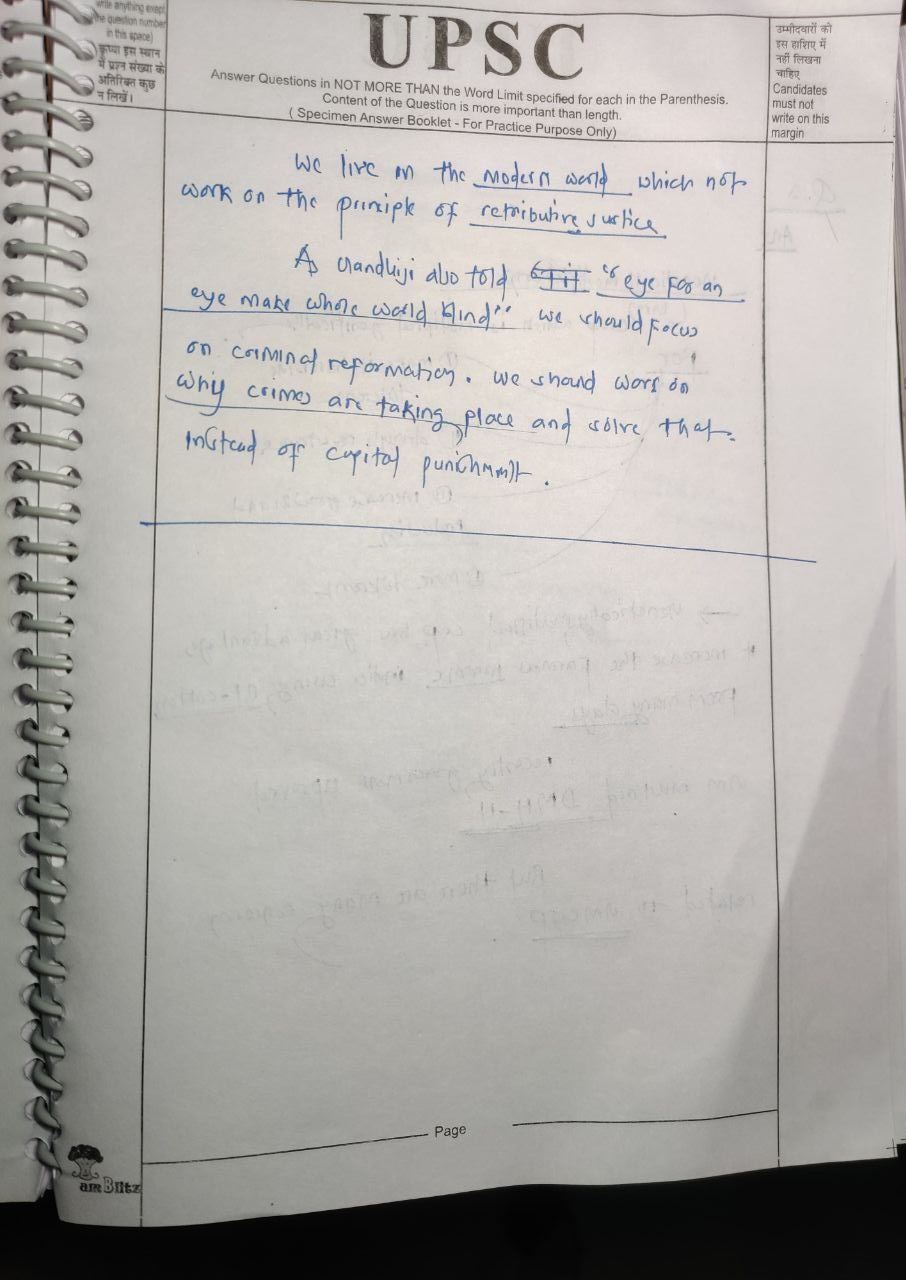 write anything except
the question number
in this space)
कृप्या इस स्थान
में प्रश्न संख्या के
अतिरिक्त कुछ
न लिखें।
UPSC
Answer Questions in NOT MORE THAN the Word Limit specified for each in the Parenthesis.
Content of the Question is more important than length.
( Specimen Answer Booklet - For Practice Purpose Only)
उम्मीदवारों को
इस हाशिए में
नहीं लिखना
चाहिए
Candidates
must not
write on this
margin
We live in the modern world which not
work on the principle of retributive justice
As Gandhiji also told "eye for an
eye make whole world blind" we should focus
on criminal reformation. we should work on
why crimes are taking place and solve that.
instead of capital punishment.
Page
amBlitz